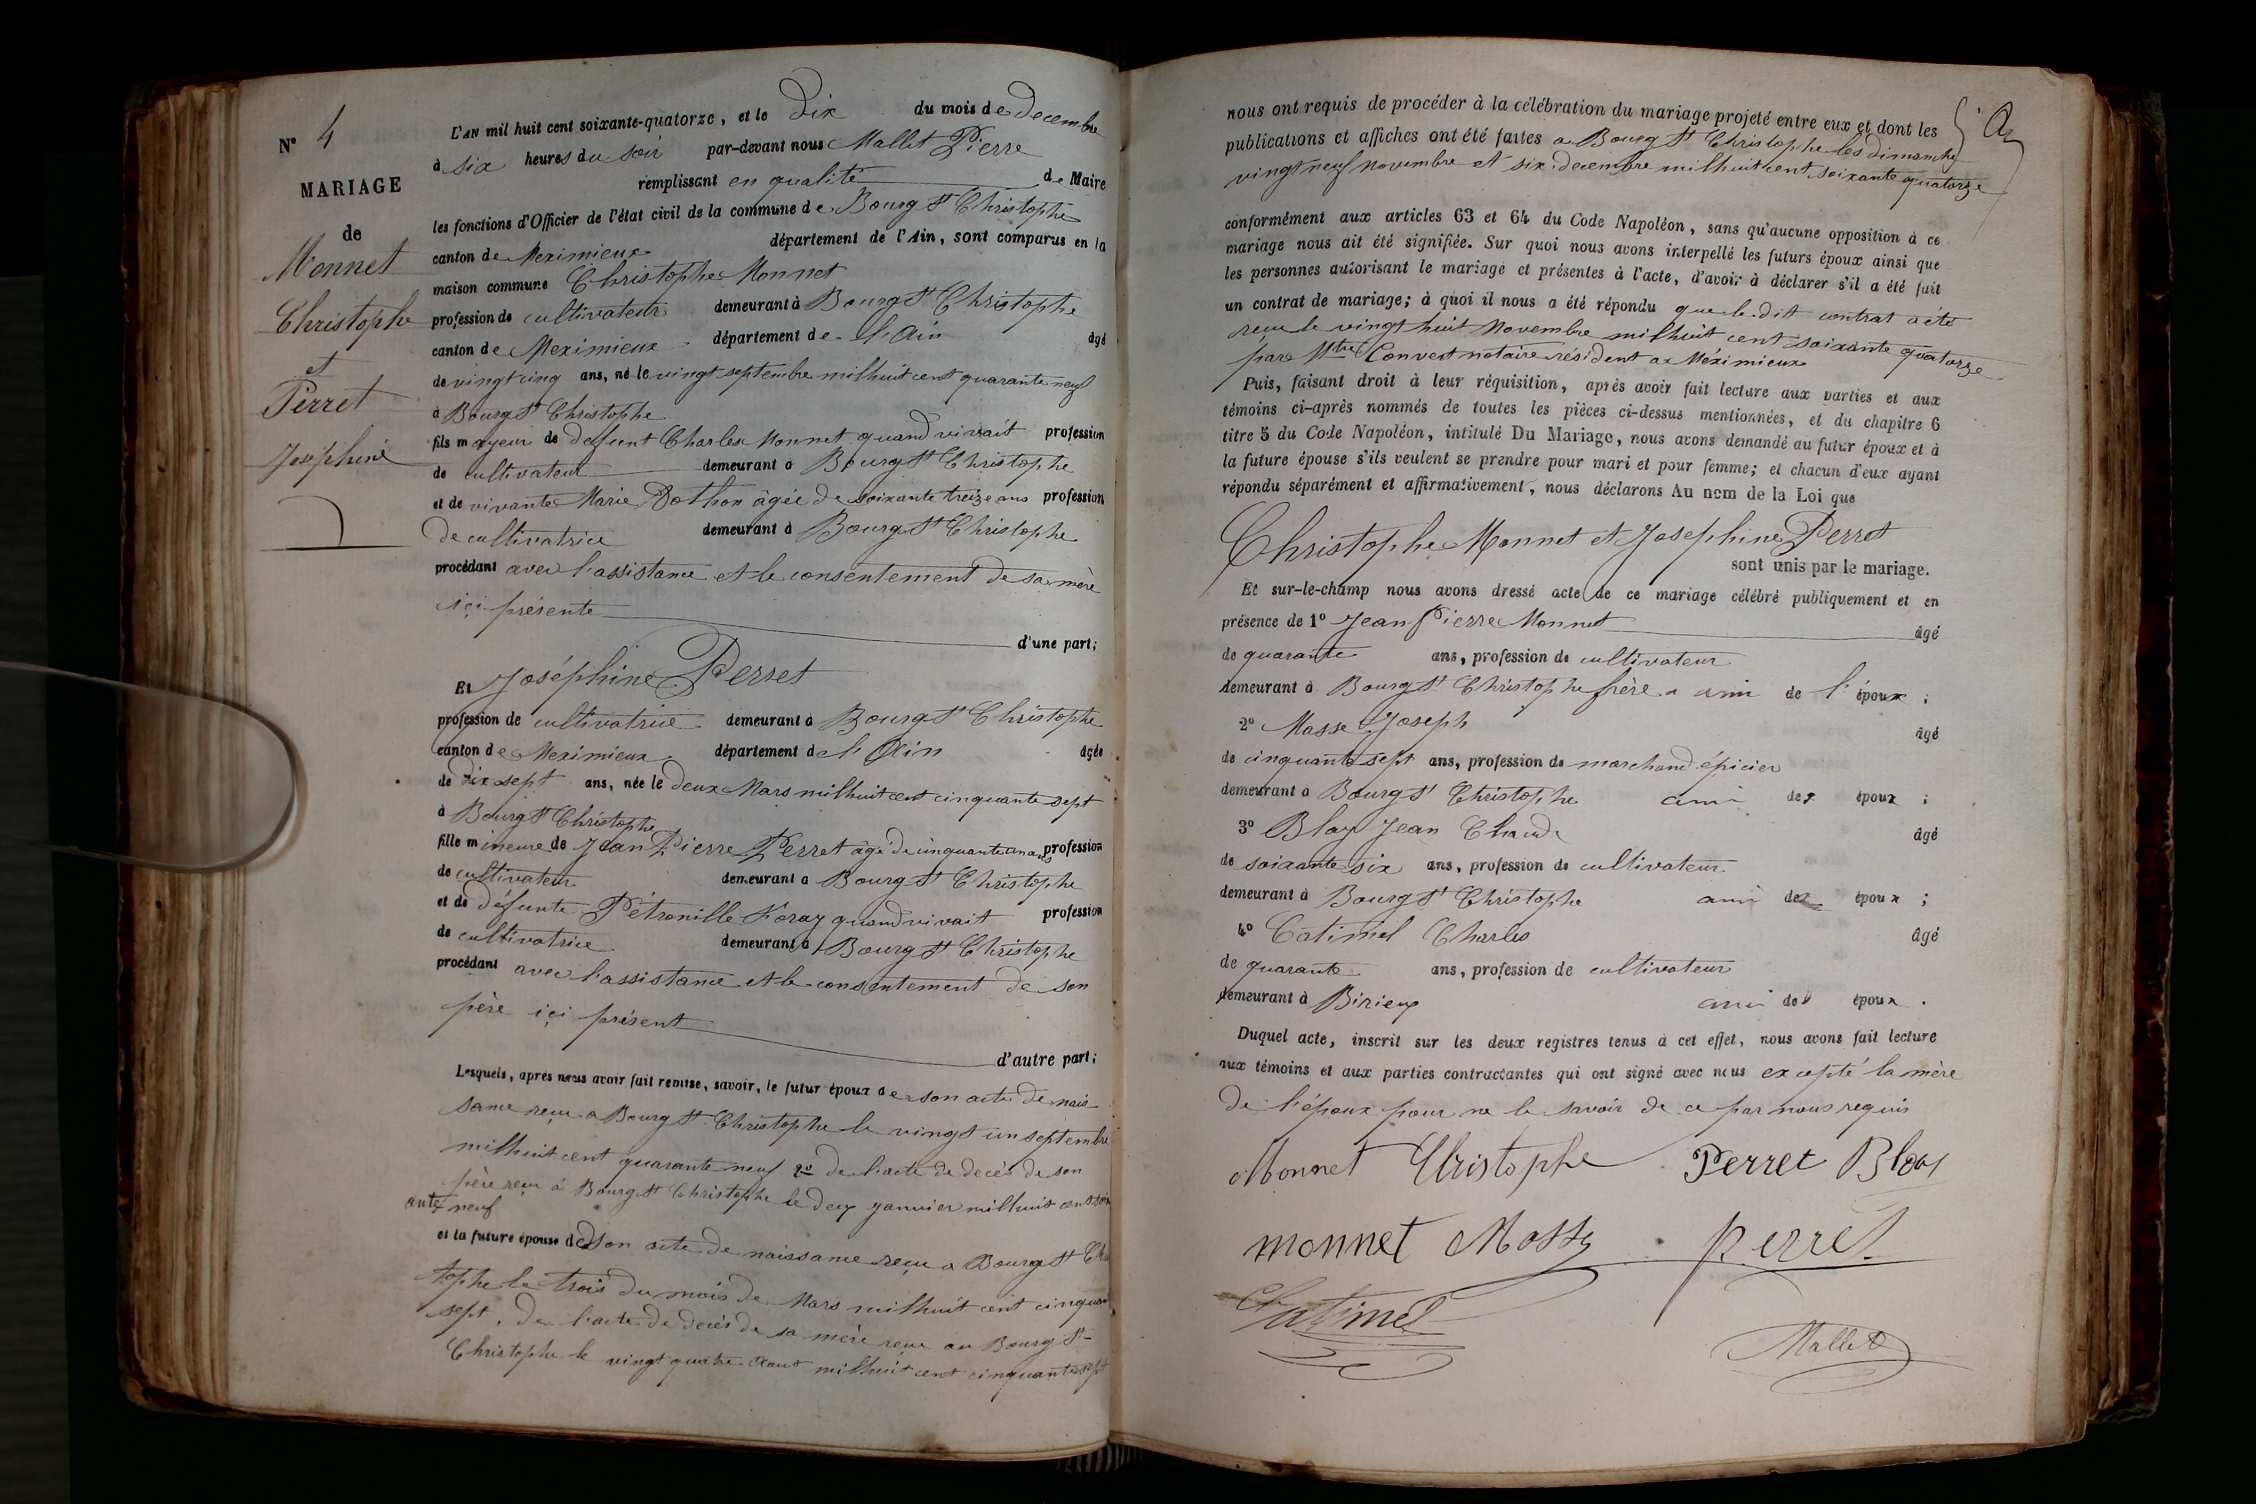 N° 4
MARIAGE
de
Monnet
Christophe
et
Perret
Joséphine
L'AN mil huit cent soixante-quatorze, et le Dix du mois de Decembre
à six heures du soir par-devant nous Mallet Pierre
remplissant en qualité de Maire
les fonctions d'Officier de l'état civil de la commune de Bourg St Christophe
canton de Meximieux département de l'Ain, sont comparus en la
maison commune Christophe Monnet
profession de cultivateur demeurant à Bourg St Christophe
canton de Meximieux département de l'Ain âgé
de vingt cinq ans, né le vingt septembre mil huit cent quarante neuf
à Bourg St Christophe
fils mayeur de defunt Charles Monnet quand vivait profession
de cultivateur demeurant à Bourg St Christophe
et de vivante Marie âgée de soixante treize ans profession
de cultivatrice demeurant à Bourg St Christophe
procédant avec l'assistance et le consentement de sa mère
içi présente
d'une part;
Et Joséphine Perret
profession de cultivatrice demeurant à Bourg St Christophe
canton de Meximieux département de l'Ain âgée
de dix sept ans, née le deux Mars mil huit cent cinquante sept
à Bourg St Christophe
fille mineure de Jean Pierre Perret âgé de cinquante un ans profession
de cultivateur demeurant à Bourg St Christophe
et de défunte Pétronille quand vivait profession
de cultivatrice demeurant à Bourg St Christophe
procédant avec l'assistance et le consentement de son
père içi présent
d'autre part;
Lesquels, après nous avoir fait remise, savoir, le futur époux de son acte de nais-
sance reçu a Bourg St Christophe le vingt un septembre
mil huit cent quarante neuf 2° de l'acte de decès de son
père reçu à Bourg St Christophe le deux janvier mil huit cent soix
ante neuf
et la future épouse de son acte de naissance reçu a Bourg St Chris
tophe le trois du mois de Mars mil huit cent cinquan
sept, de l'acte de decès de sa mère reçu au Bourg St-
Christophe le vingt quatre aout mil huit cent cinquante sept
nous ont requis de procéder à la célébration du mariage projeté entre eux et dont les
publications et affiches ont été faites a Bourg St Christophe les dimanche
vingt neuf novembre et six decembre mil huit cent soixante quatorze
conformément aux articles 63 et 64 du Code Napoléon, sans qu'aucune opposition à ce
mariage nous ait été signifiée. Sur quoi nous avons interpellé les futurs époux ainsi que
les personnes autorisant le mariage et présentes à l'acte, d'avoir à déclarer s'il a été fait
un contrat de mariage; à quoi il nous a été répondu que le dit contrat a été
reçu le vingt huit Novembre mil huit cent soixante quatorze
par Mtre Convert notaire résident a Méximieux
Puis, faisant droit à leur réquisition, après avoir fait lecture aux parties et aux
témoins ci-après nommés de toutes les pièces ci-dessus mentionnées, et du chapitre 6
titre 5 du Code Napoléon, intitulé Du Mariage, nous avons demandé au futur époux et à
la future épouse s'ils veulent se prendre pour mari et pour femme; et chacun d'eux ayant
répondu séparément et affirmativement, nous déclarons Au nom de la Loi que
Christophe Monnet et Joséphine Perret
sont unis par le mariage.
Et sur-le-champ nous avons dressé acte de ce mariage célébré publiquement et en
présence de 1° Jean Pierre Monnet âgé
de quarante ans, profession de cultivateur
demeurant à Bourg St Christophe frère a ami de l'époux;
2° Masse Joseph âgé
de cinquante sept ans, profession de marchand épicier
demeurant à Bourg St Christophe ami des époux;
3° Blay Jean Claude âgé
de soixante six ans, profession de cultivateur
demeurant à Bourg St Christophe ami des époux;
4° Catimel Charles âgé
de quarante ans, profession de cultivateur
demeurant à Birieux ami des époux.
Duquel acte, inscrit sur les deux registres tenus à cet effet, nous avons fait lecture
aux témoins et aux parties contractantes qui ont signé avec nous excepté la mère
de l'époux pour ne le savoir de ce par nous requis
Monnet Christophe Perret Blay
monnet Masse perret
Catimel
Mallet